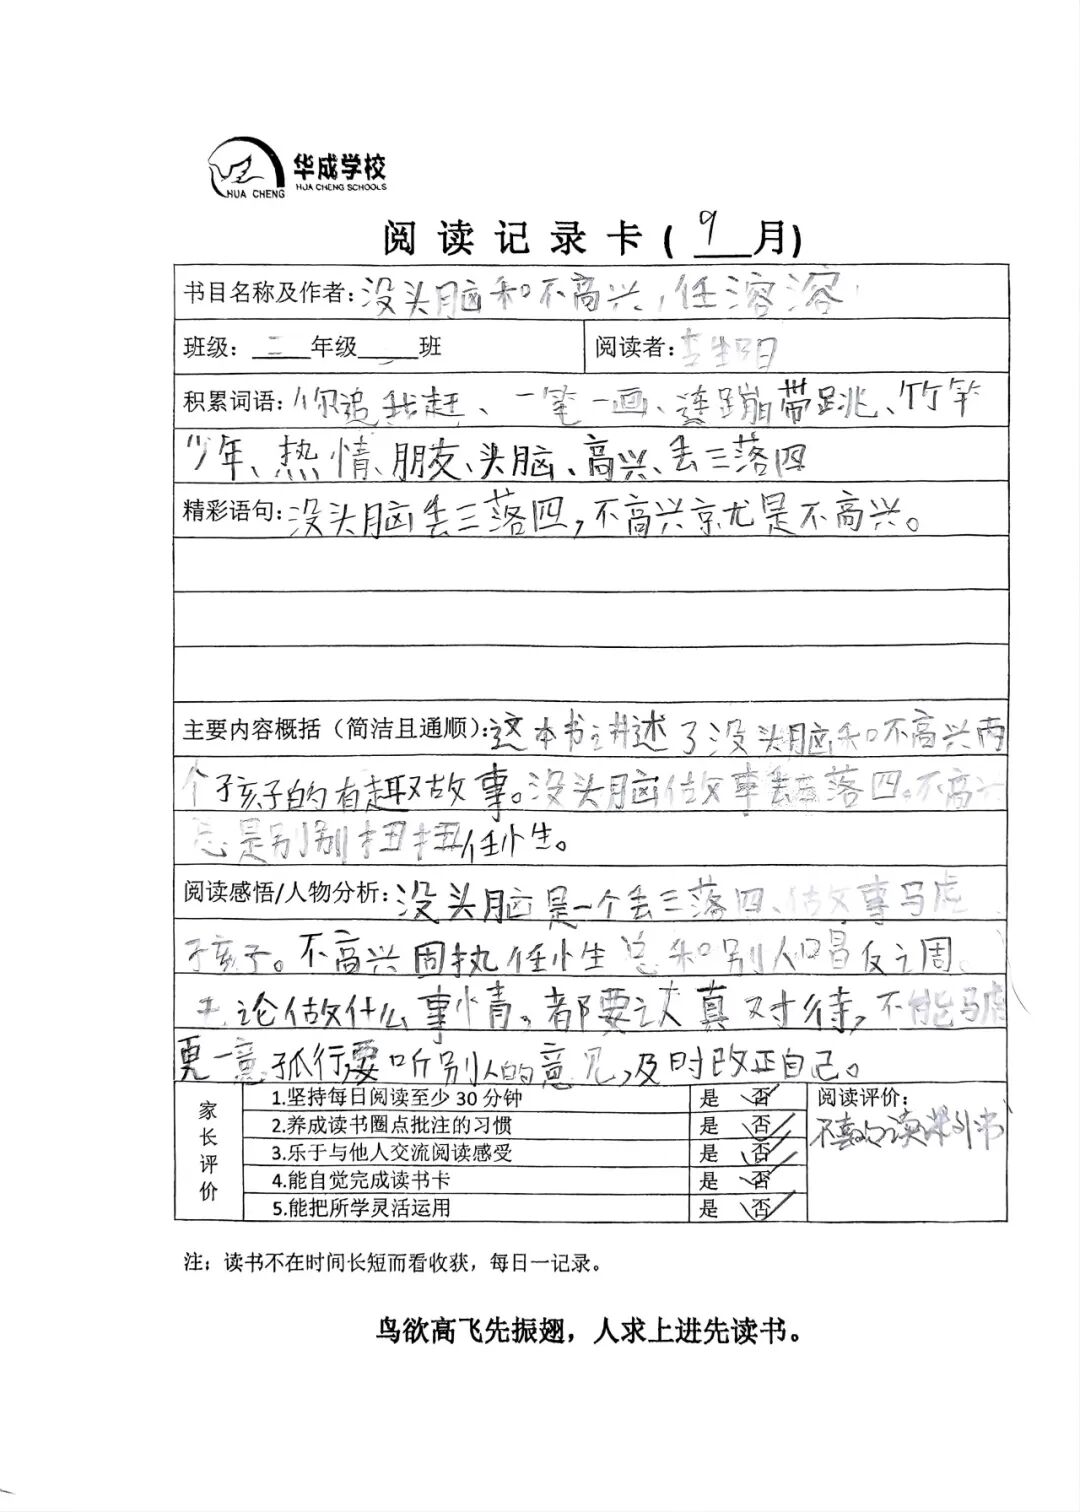 华成学校
HUA CHENG
HUA CHENG SCHOOLS
阅读记录卡(9月)
书目名称及作者:没头脑和不高兴,任溶溶
班级:二年级 班 阅读者:
积累词语:你追我赶、一笔一画、连蹦带跳、竹竿
少年、热情、朋友、头脑、高兴、丢三落四
精彩语句:没头脑丢三落四,不高兴就是不高兴。
主要内容概括(简洁且通顺):这本书讲述了没头脑和不高兴两
个孩子的有趣故事。没头脑做事丢三落四。不高兴
总是别别扭扭任性。
阅读感悟/人物分析:没头脑是一个丢三落四、做事马虎
孩子。不高兴固执任性总和别人唱反调。
无论做什么事情,都要认真对待,不能马虎
更一意孤行要听别人的意见,及时改正自己。
家长评价
1.坚持每日阅读至少30分钟 是 否
2.养成读书圈点批注的习惯 是 否
3.乐于与他人交流阅读感受 是 否
4.能自觉完成读书卡 是 否
5.能把所学灵活运用 是 否
阅读评价:
不喜的读课外书
注:读书不在时间长短而看收获,每日一记录。
鸟欲高飞先振翅,人求上进先读书。